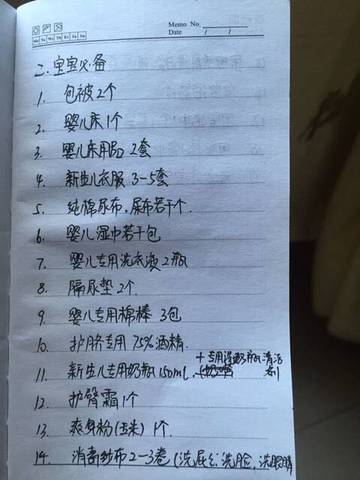 Memo No.
Date / /
Mo Tu We Th Fr Sa Su
二.宝宝必备
1. 包被2个
2. 婴儿床1个
3. 婴儿床用品 2套
4. 新生儿衣服 3-5套
5. 纯棉尿布,尿布若干个.
6. 婴儿湿巾若干包
7. 婴儿专用洗衣液2瓶
8. 隔尿垫2个.
9. 婴儿专用棉棒 3包
10. 护脐专用 75%酒精.
十专用 奶瓶清洁剂1
11. 新生儿专用奶瓶150ml.
12. 护臀霜1个
13. 爽身粉(玉米) 1个.
14. 消毒纱布2-3卷(洗屁屁.洗脸,洗眼睛